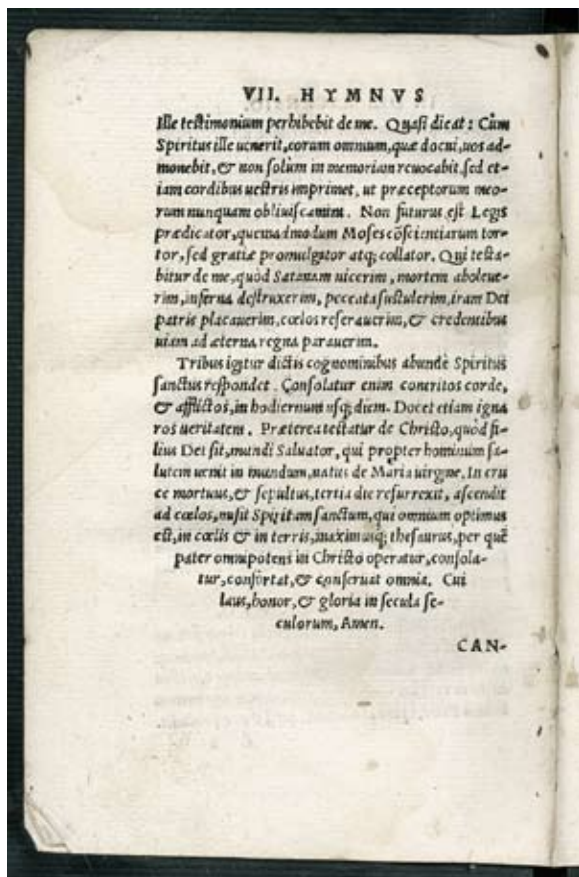 VII. HYMNVS
Ille testimonium perhibebit de me. Quasi dicat: Cùm
Spiritus ille uenerit, eorum omnium, quæ docui, uos ad-
monebit, & non solùm in memoriam reuocabit, sed et-
iam cordibus uestris imprimet, ut præceptorum meo-
rum nunquam obliuiscamini. Non futurus est Legis
prædicator, quemadmodum Moses cõscientiarum tor-
tor, sed gratiæ promulgator atq; collator. Qui testa-
bitur de me, quòd Satanam uicerim, mortem aboleue-
rim, inferna destruxerim, peccata sustulerim, iram Dei
patris placauerim, cœlos reserauerim, & credentibus
uiam ad æterna regna parauerim.
Tribus igitur dictis cognominibus abundè Spiritus
sanctus respondet. Consolatur enim contritos corde,
& afflictos, in hodiernum usq; diem. Docet etiam igna
ros ueritatem. Præterea testatur de Christo, quòd fi-
lius Dei sit, mundi Saluator, qui propter hominum sa-
lutem uenit in mundum, natus de Maria uirgine. In cru
ce mortuus, & sepultus, tertia die resurrexit, ascendit
ad cœlos, misit Spiritum sanctum, qui omnium optimus
est, in cœlis & in terris, maximusq; thesaurus, per quẽ
pater omnipotens in Christo operatur, consola-
tur, confortat, & conseruat omnia. Cui
laus, honor, & gloria in secula se-
culorum, Amen.
CAN-